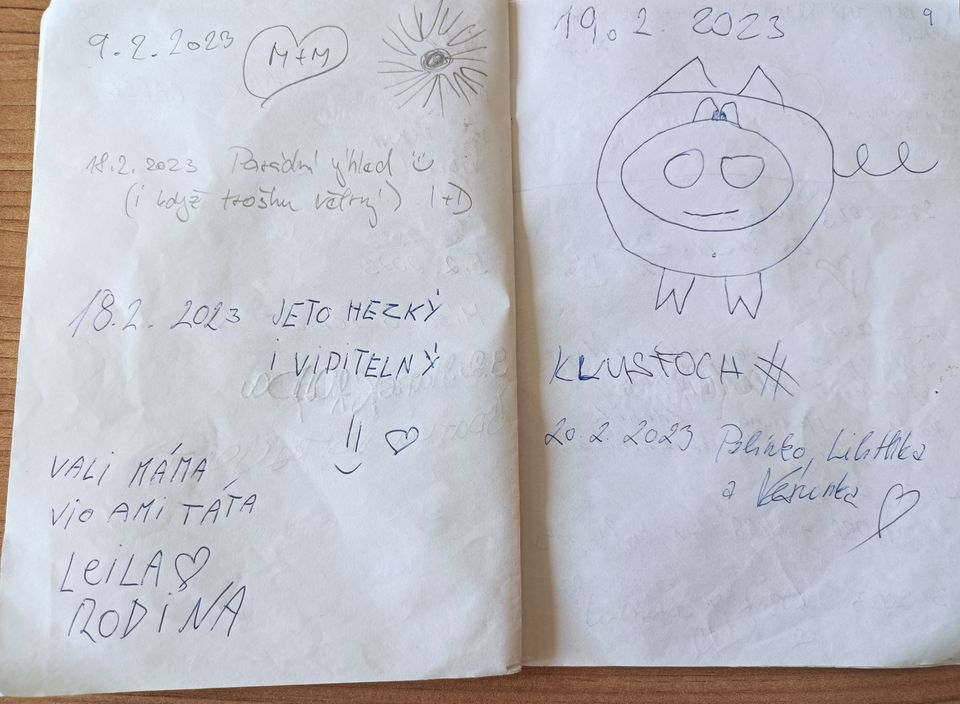 9.2.2023 M+M
18.2.2023 Parádní výhled
(i když trošku větrný) I+D
18.2.2023 JETO HEZKÝ
I VIDITELNÝ
VALI MÁMA
VIO AMI TÁŤA
LEILA
RODINA
19.2.2023
9
KLUSŤOCH
20.2.2023
a Verunka